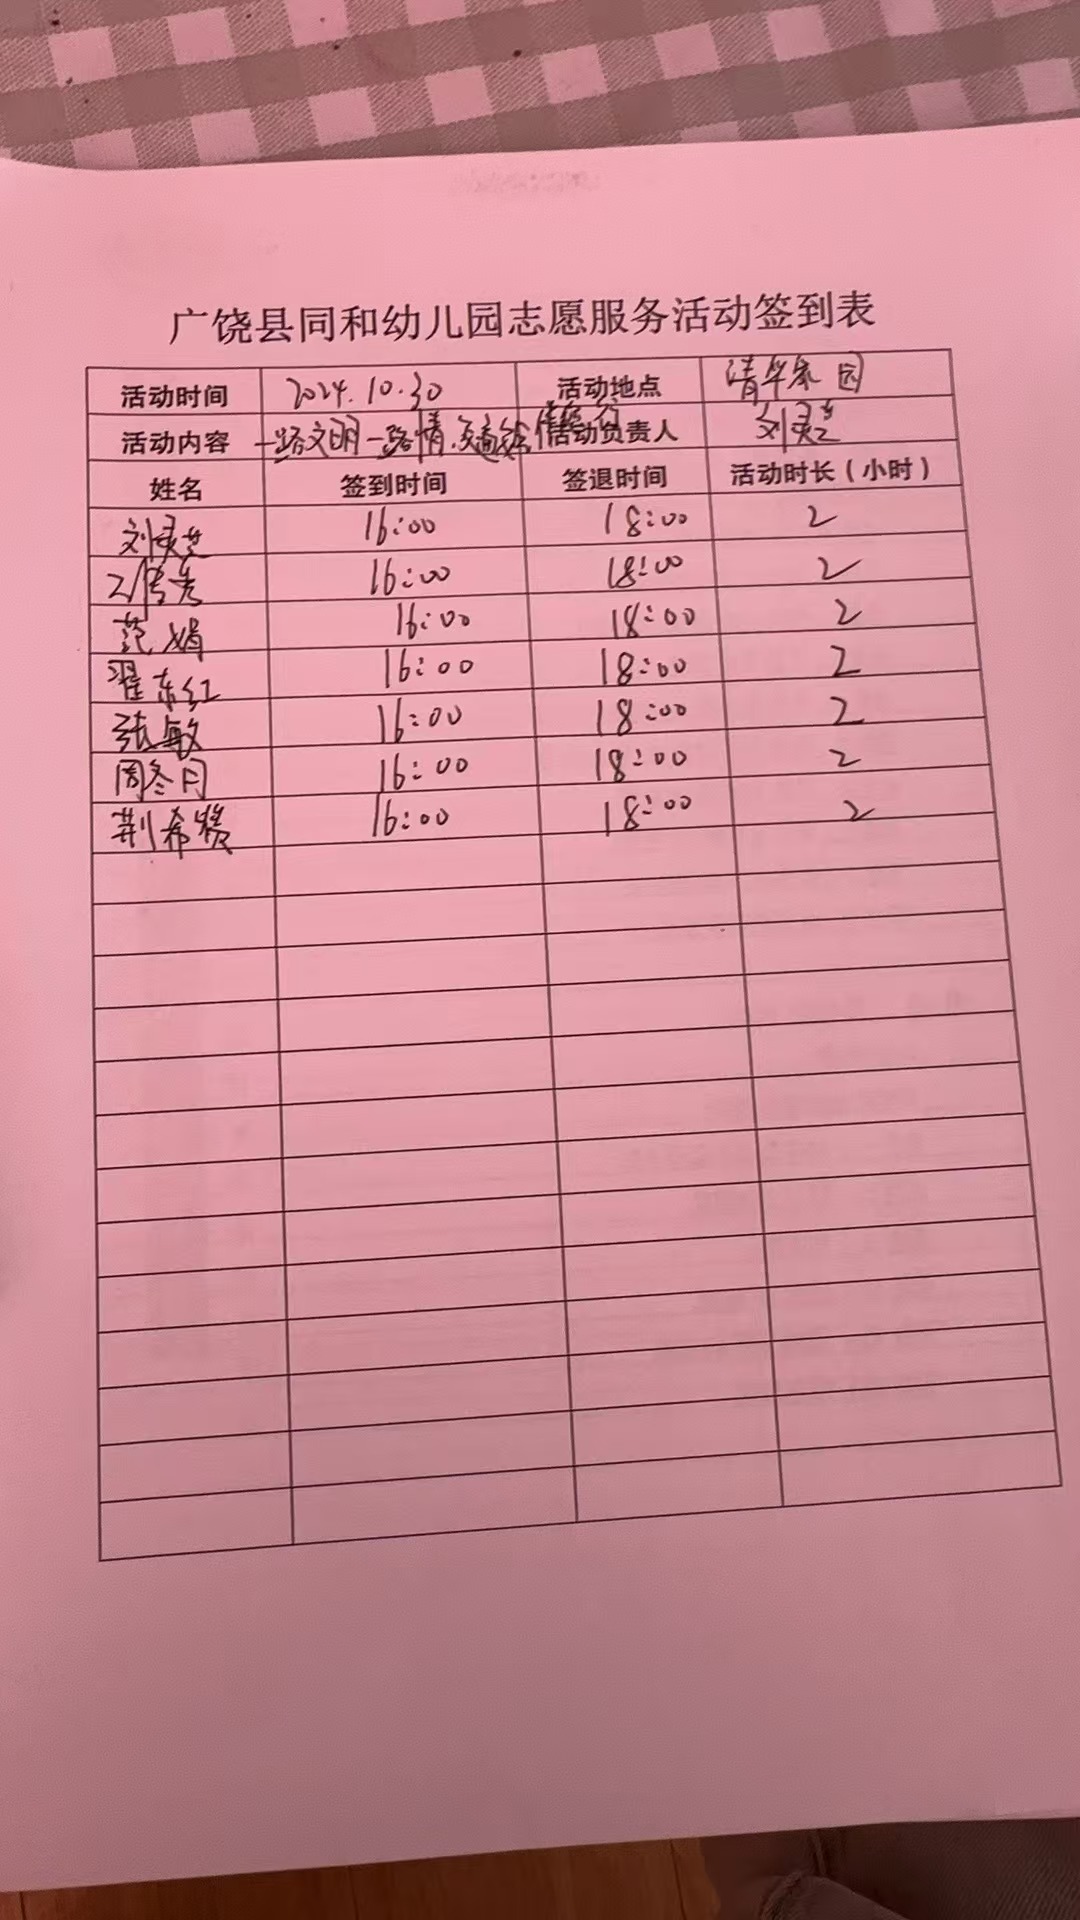 广饶县同和幼儿园志愿服务活动签到表
活动时间 2024.10.30 活动地点 清华家园
活动内容 一路文明一路情. 活动负责人 刘灵芝
姓名 签到时间 签退时间 活动时长（小时）
刘灵芝 16:00 18:00 2
16:00 18:00 2
范娟 16:00 18:00 2
翟东红 16:00 18:00 2
张敏 16:00 18:00 2
周冬月 16:00 18:00 2
荆希 16:00 18:00 2